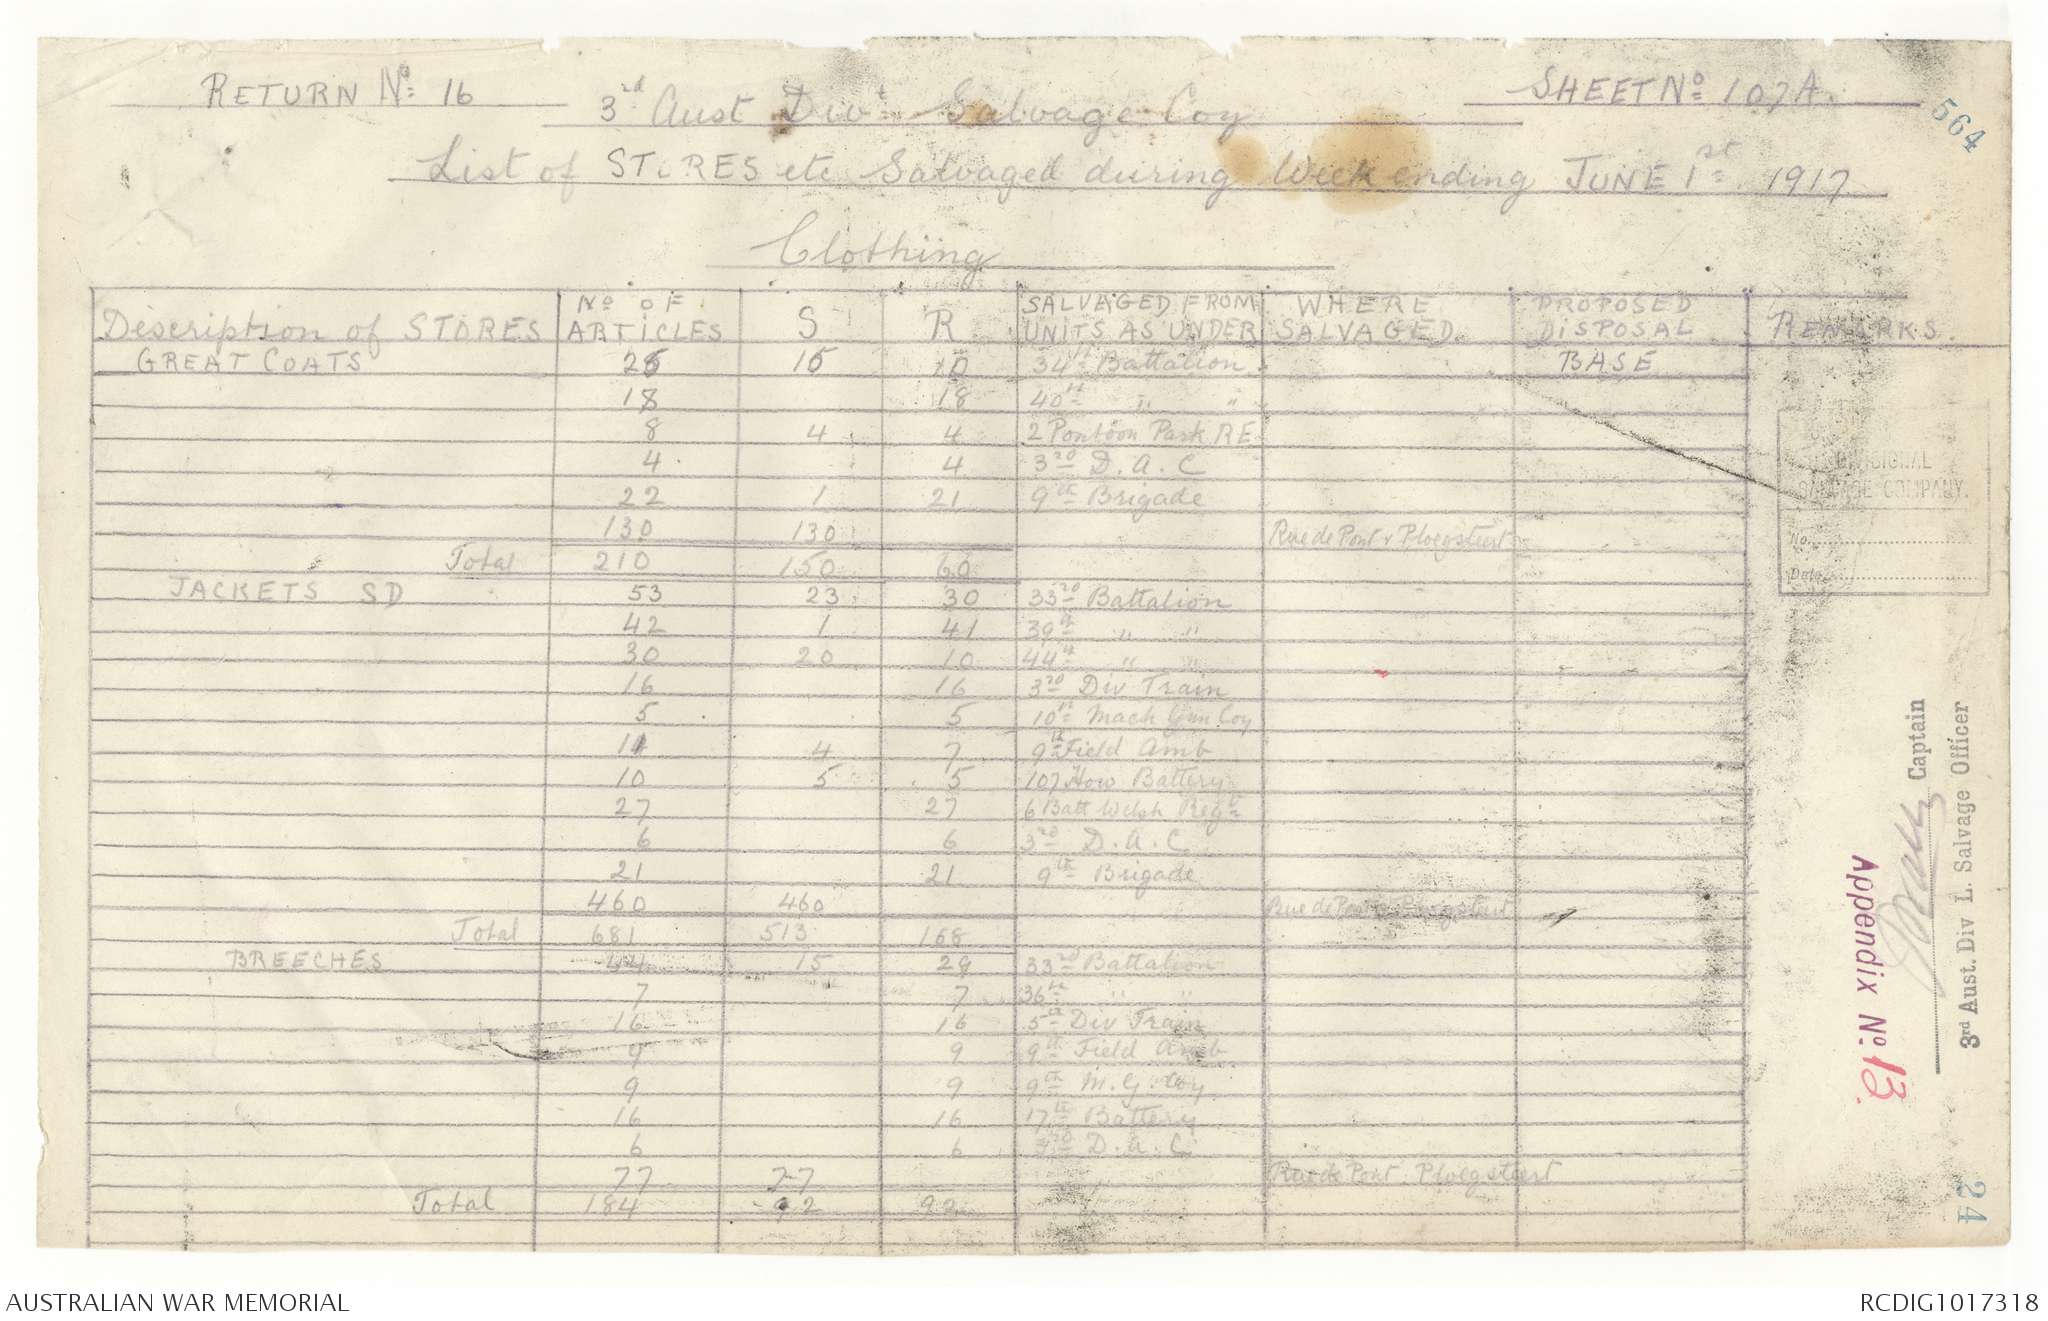 RETURN No 16
3rd Aust Div Salvage Coy
SHEET No 107A.
564
List of STORES etc Salvaged during Week ending JUNE 1st 1917
Clothing
Description of STORES No OF ARTICLES S R SALVAGED FROM UNITS AS UNDER WHERE SALVAGED PROPOSED DISPOSAL REMARKS.
GREAT COATS 28 15 10 34th Battalion BASE
18 18 40th " "
8 4 4 2 Pontoon Park RE
4 4 3RD D.A.C
22 1 21 9th Brigade
130 130 Rue de Pont & Ploegsteert
Total 210 150 60
JACKETS SD 53 23 30 33RD Battalion
42 1 41 39th " "
30 20 10 44th " "
16 16 3RD Div Train
5 5 10th Mach Gun Coy
11 4 7 9th Field Amb
10 5 5 107 How Battery
27 27 6 Batt Welsh Regt
6 6 3RD D.A.C
21 21 9th Brigade
460 460 Rue de Pont & Ploegsteert
Total 681 513 168
BREECHES 44 15 29 33RD Battalion
7 7 36th " "
16 16 5th Div Train
9 9 9th Field Amb
9 9 9th M.G. Coy
16 16 17th Battery
6 6 3RD D.A.C
77 77 Rue de Pont. Ploegsteert
Total 184 92 92
DIVISIONAL
SALVAGE COMPANY.
No.
Date
Captain
3rd Aust. Div L. Salvage Officer
Appendix No 13
24
AUSTRALIAN WAR MEMORIAL
RCDIG1017318